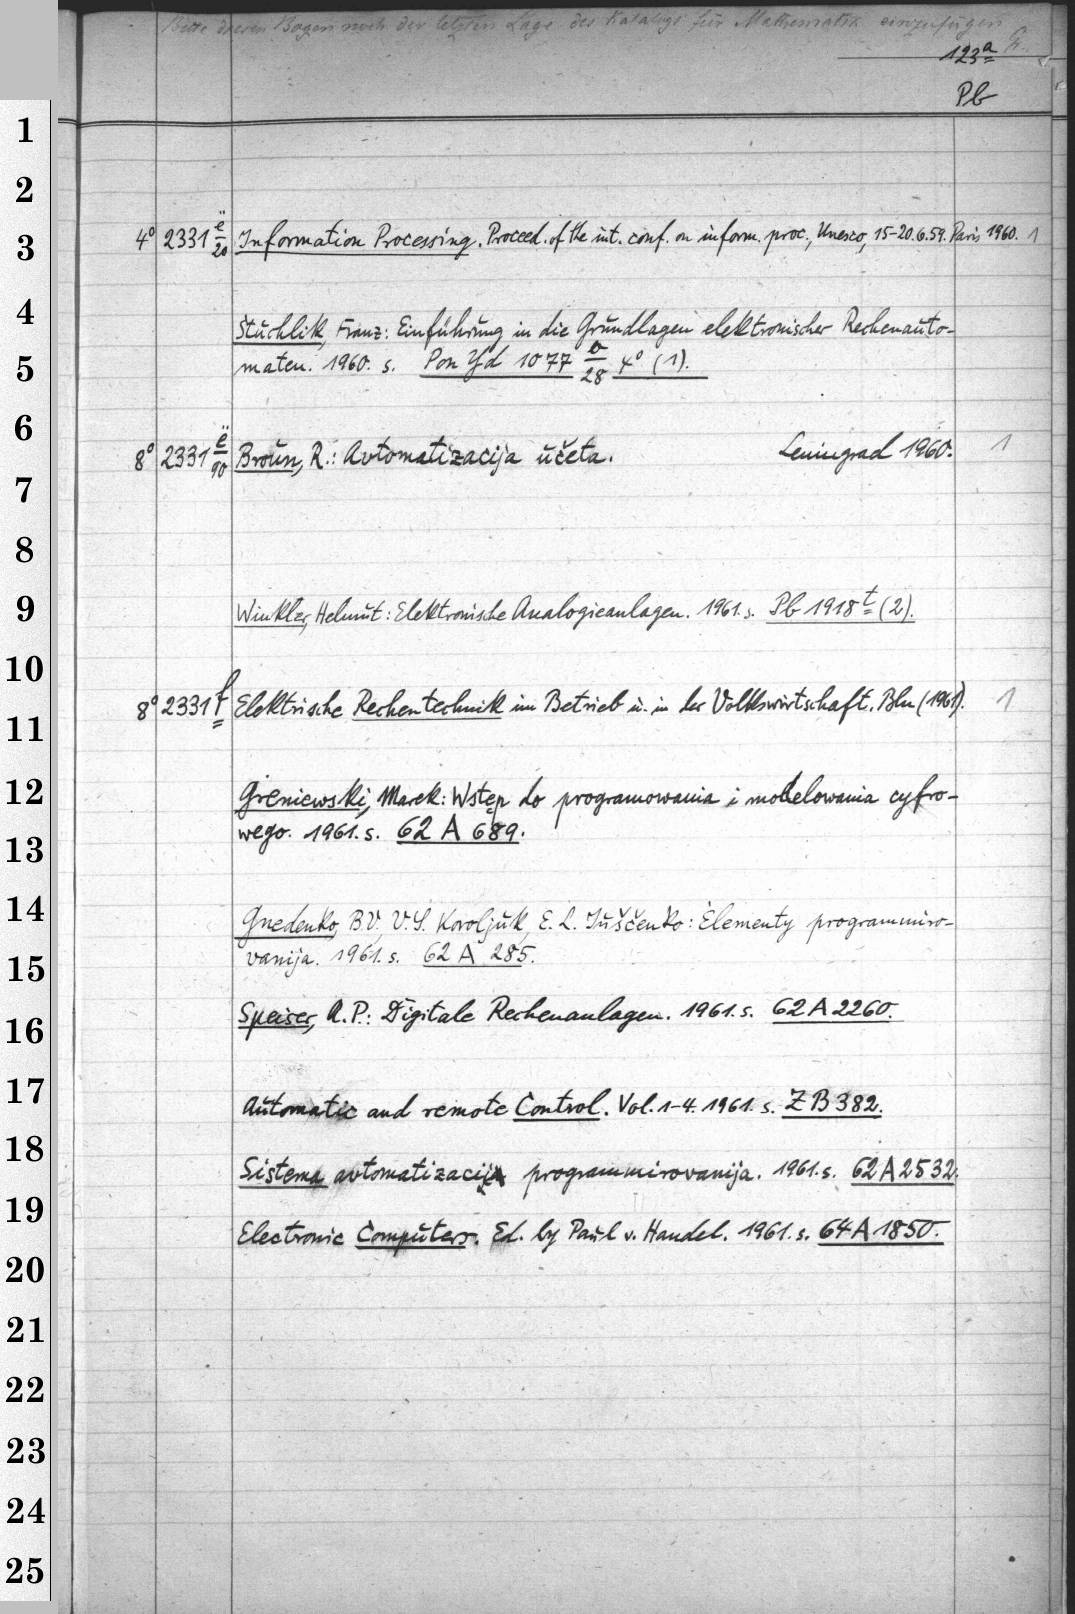 Bitte diesen Bogen nach der letzten Lage des Katalogs für Mathematik einzufügen
123a
Pb
1
2
3
4° 2331 ë/20 Information Processing. Proceed. of the int. conf. on inform. proc., Unesco, 15-20.6.59. Paris 1960. 1
4
Stuchlik, Franz: Einführung in die Grundlagen elektronischer Rechenauto-
5
maten. 1960. s. Pon Yd 1077 o/28 4° (1).
6
8° 2331 ë/90 Broun, R.: Avtomatizacija učeta. Leningrad 1960. 1
7
8
9
Winkler, Helmut: Elektronische Analogieanlagen. 1961. s. Pb 1918 t (2).
10
8° 2331 f Elektrische Rechentechnik im Betrieb u. in der Volkswirtschaft. Bln (1961). 1
11
12
Greniewski, Marek: Wstęp do programowania i modelowania cyfro-
wego. 1961. s. 62 A 689.
13
14
Gnedenko, B.V. V.S. Koroljuk, E. L. Juščenko: Elementy programmiro-
vanija. 1961. s. 62 A 285.
15
Speiser, A.P.: Digitale Rechenanlagen. 1961. s. 62 A 2260.
16
17
Automatic and remote Control. Vol. 1-4. 1961. s. ZB 382.
18
Sistema avtomatizacii programmirovanija. 1961. s. 62 A 2532.
19
Electronic Computers. Ed. by Paul v. Handel. 1961. s. 64 A 1850.
20
21
22
23
24
25